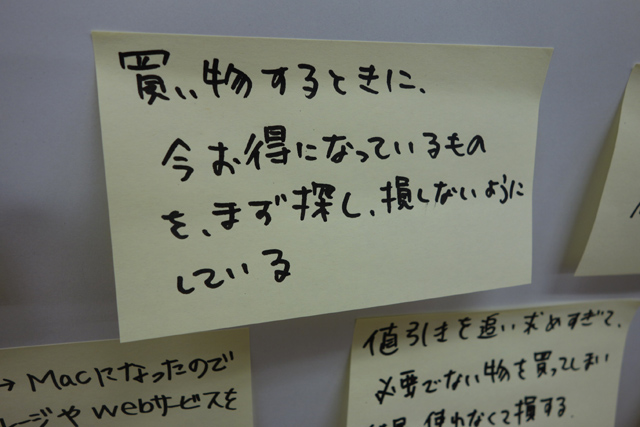 買い物するときに、
今お得になっているもの
を、まず探し、損しないように
している
→ Macになったので
ージやwebサービスを
値引きを追い求めすぎて、
必要でない物を買ってしまい
使わなくて損する.